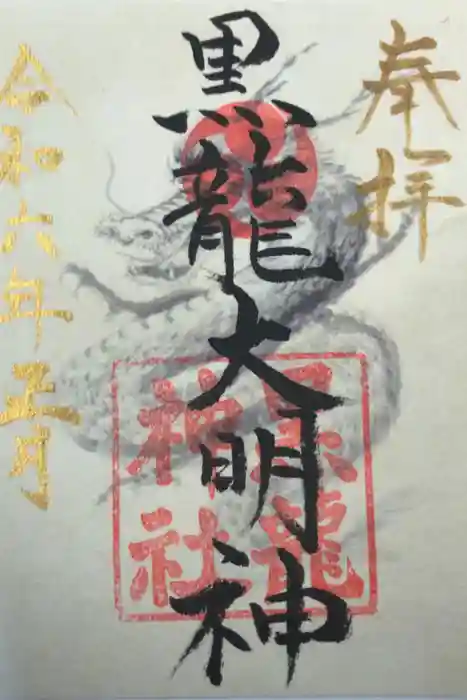 奉拝
黒龍大明神
令和六年正月
黒龍
神社